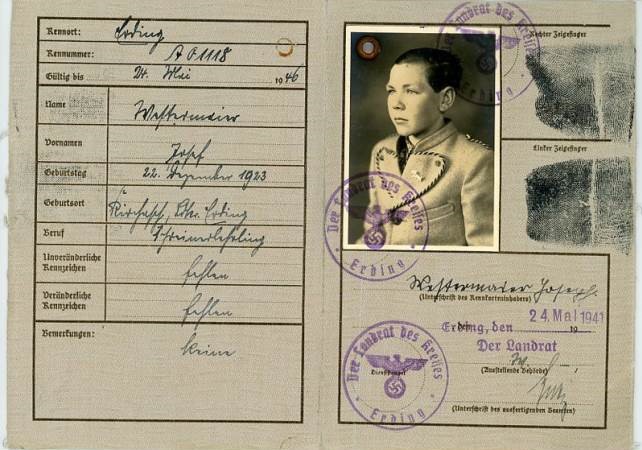 Kennort: Erding
Kennummer: A 01118
Gültig bis 24. Mai 1946
Name Westermaier
Vornamen Josef
Geburtstag 22. Dezember 1923
Geburtsort Kirchasch, Erding
Beruf Schreinerlehrling
Unveränderliche Kennzeichen fehlen
Veränderliche Kennzeichen fehlen
Bemerkungen: keine
Der Landrat des Kreises
Erding
Rechter Zeigefinger
Linker Zeigefinger
Der Landrat des Kreises
Erding
Westermaier Joseph
(Unterschrift des Kennkarteninhabers)
Erding, den 24. Mai 1941
19
Der Landrat
(Ausstellende Behörde)
Der Landrat des Kreises
Erding
Dienststempel
(Unterschrift des ausfertigenden Beamten)